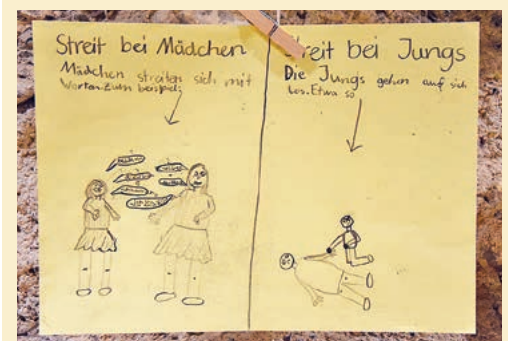 Streit bei Mädchen
Mädchen streiten sich mit
Worten. Zum beispiel:
Streit bei Jungs
Die Jungs gehen auf sich
los. Etwa so